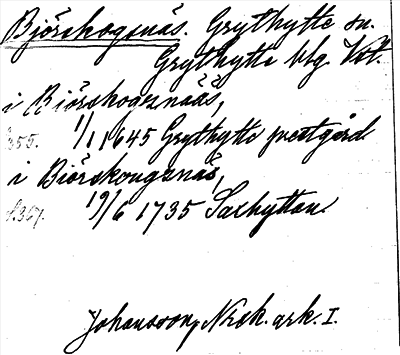 Björskogsnäs. Grythytte sn.
Grythytte blg. Vstm.
i Biörskogsnääs,
1/1 1645 Grythytte prestgård
s. 355.
i Biörskougsnäs,
19/6 1735 Saxhyttan.
s. 367.
Johansson, Nrsk. ark. I.